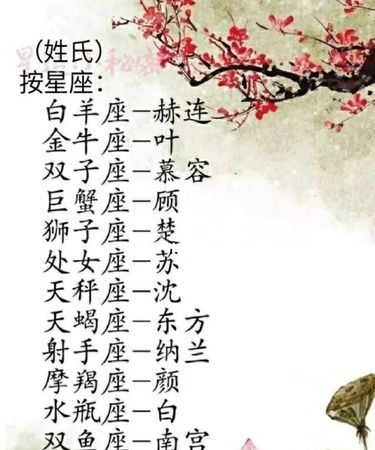 （姓氏）
按星座：
白羊座－赫连
金牛座－叶
双子座－慕容
巨蟹座－顾
狮子座－楚
处女座－苏
天秤座－沈
天蝎座－东方
射手座－纳兰
摩羯座－颜
水瓶座－白
双鱼座－南宫